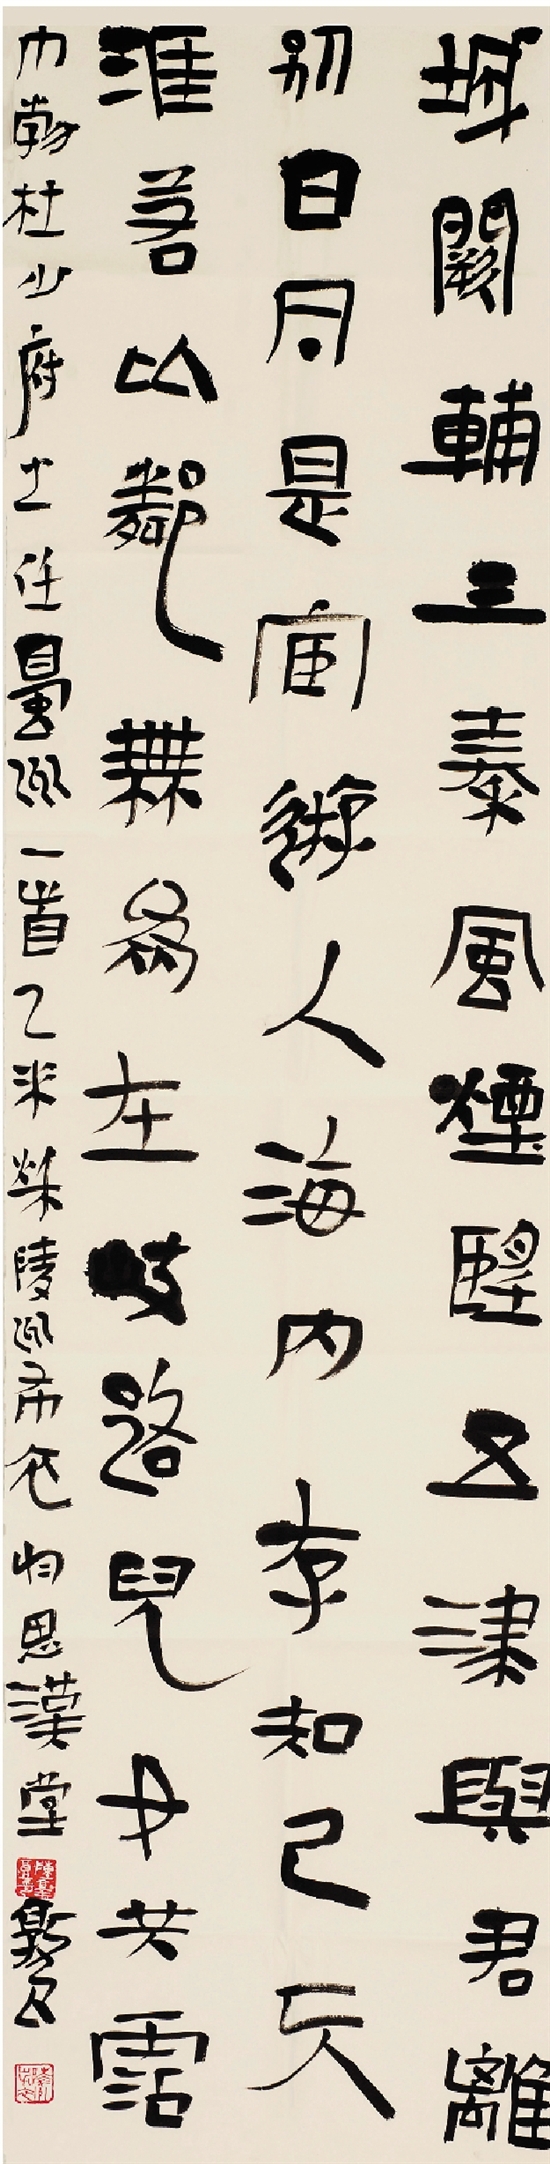 城闕輔三秦風煙望五津與君離
別日同是宦遊人海內存知己天
涯若比鄰無為在歧路兒女共霑
巾勃杜少府之任蜀州一首乙未秋陵州布衣思漢堂